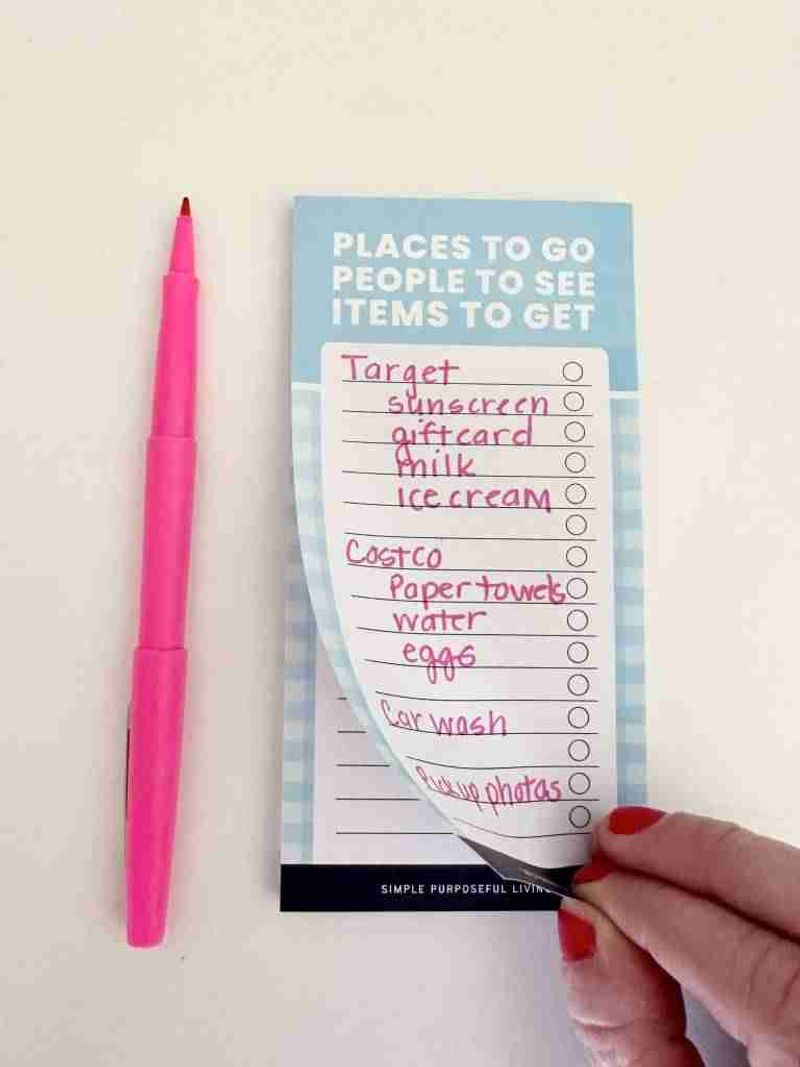 PLACES TO GO
PEOPLE TO SEE
ITEMS TO GET
Target
sunscreen
giftcard
milk
ice cream
Costco
Paper towels
water
eggs
Car wash
Pickup photos
SIMPLE PURPOSEFUL